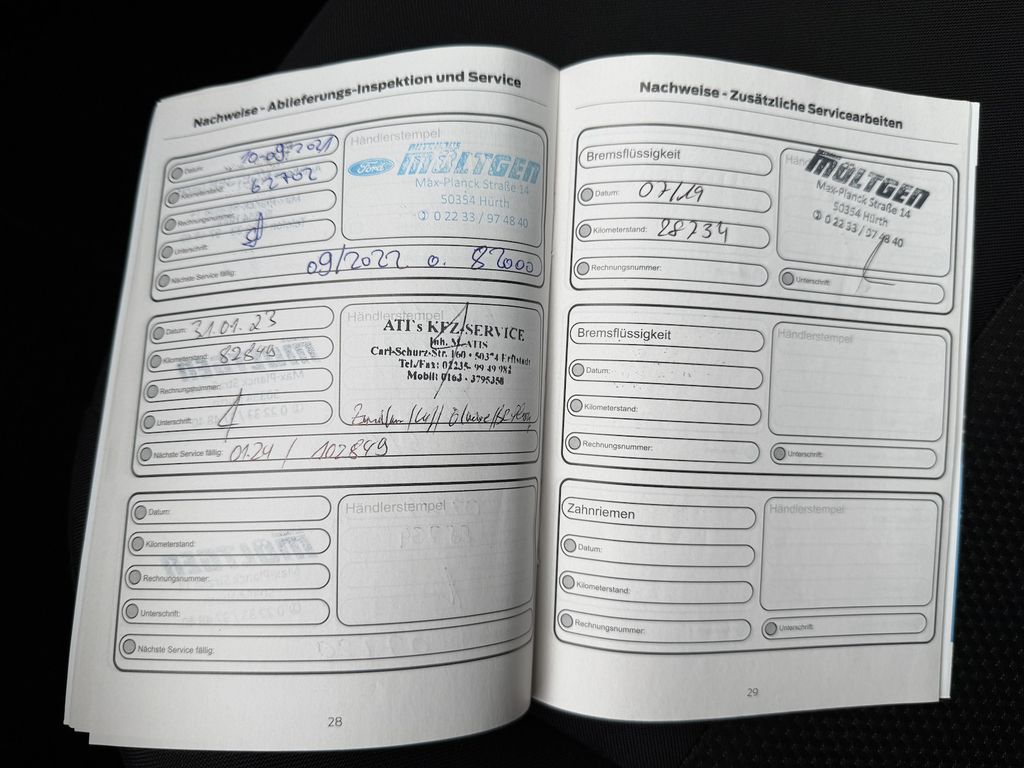 Nachweise - Ablieferungs-Inspektion und Service
Datum: 10-09-2021
Kilometerstand: 62702
Rechnungsnummer:
Unterschrift:
Nächste Service fällig: 09/2022 o. 82000
Händlerstempel
Ford
AUTOHAUS
MÖLTGEN
Max-Planck Straße 14
50354 Hürth
0 22 33 / 97 48 40
Datum: 31.01.23
Kilometerstand: 82849
Rechnungsnummer:
Unterschrift:
Nächste Service fällig: 01.24 / 102849
Händlerstempel
ATI`s KFZ-SERVICE
Inh. M. ATIS
Carl-Schurz-Str. 160 • 50374 Erftstadt
Tel./Fax: 02235- 99 49 982
Mobil: 0163 - 3795350
Datum:
Kilometerstand:
Rechnungsnummer:
Unterschrift:
Nächste Service fällig:
Händlerstempel
28
Nachweise - Zusätzliche Servicearbeiten
Bremsflüssigkeit
Datum: 07/19
Kilometerstand: 28734
Rechnungsnummer:
MÖLTGEN
Max-Planck Straße 14
50354 Hürth
0 22 33 / 97 48 40
Unterschrift:
Bremsflüssigkeit
Datum:
Kilometerstand:
Rechnungsnummer:
Händlerstempel
Unterschrift:
Zahnriemen
Datum:
Kilometerstand:
Rechnungsnummer:
Händlerstempel
Unterschrift:
29